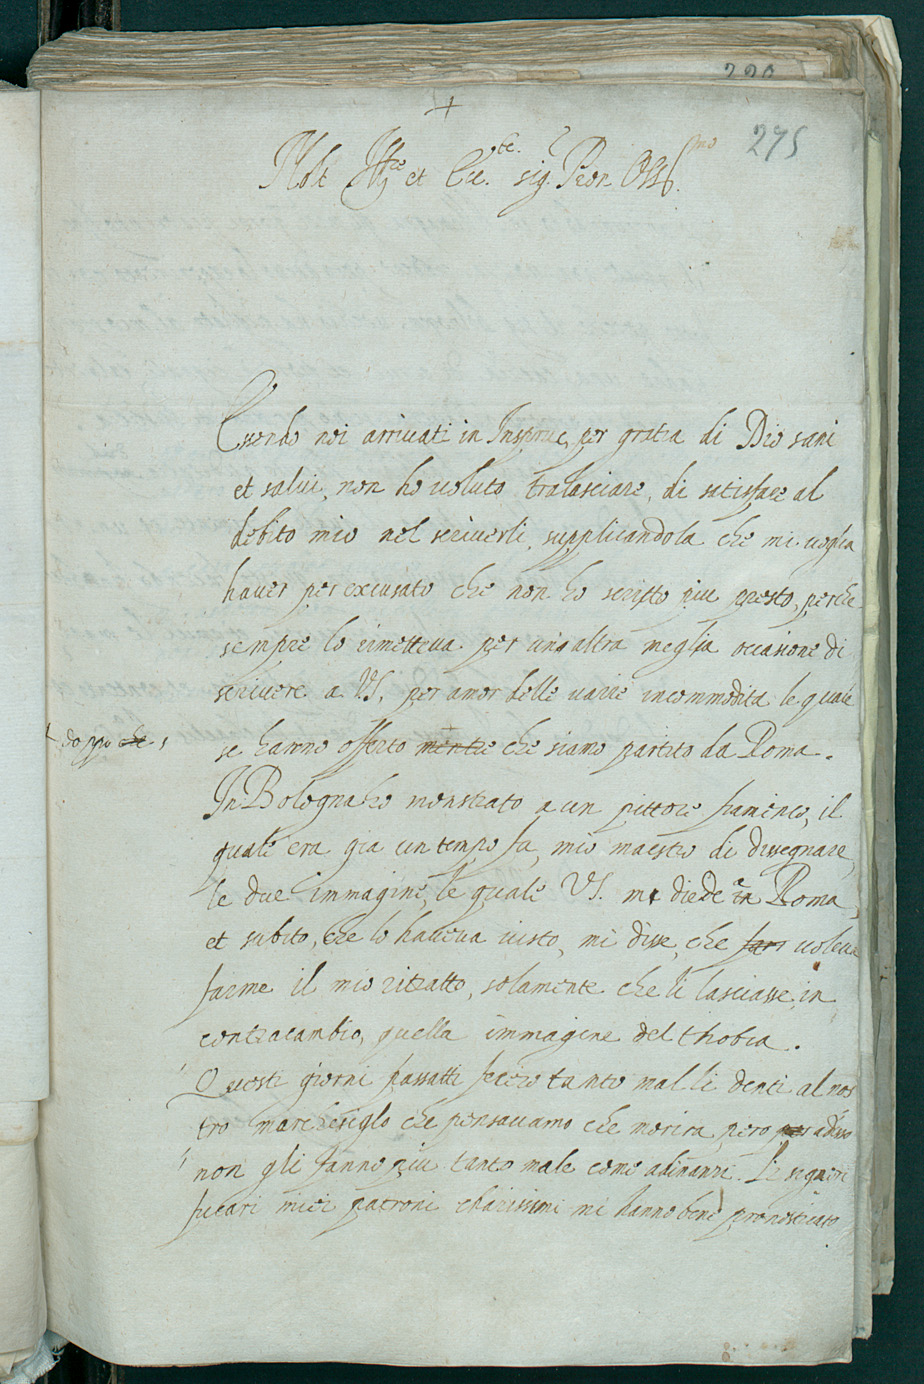 220
275
+
Molt Ill.re et Ecc.te sig. Pron Oss.mo
Essendo noi arrivati in Inspruc, per gratia di Dio sani
et salvi, non ho voluto tralasciare, di satisfare al
debito mio nel scriverli, supplicandola che mi voglia
haver per excusato che non ho scripto piu presto, perche
sempre lo rimetteva per una altra meglia occasione di
scrivere a VS. per amor delle varie incommodita le quale
doppo che
se hanno offerto mentre che siamo partito da Roma.
In Bologna ho monstrato a un pittore framenco, il
quale era gia un tempo fa, mio maestro di dissegnare,
le due immagine, le quale VS. mi diede in Roma,
et subito, che lo haveva visto, mi disse, che voleva
farme il mio ritratto, solamente che li lasciasse, in
contracambio, quella immagine del thobia.
Questi giorni passatti fecero tanto mal li denti al nos
tro marchesiglo che pensavamo che morira, pero adesso
non gli fanno piu tanto male come adinanzi. Li signori
fucari miei patroni charissimi mi hanno bene pronosticato